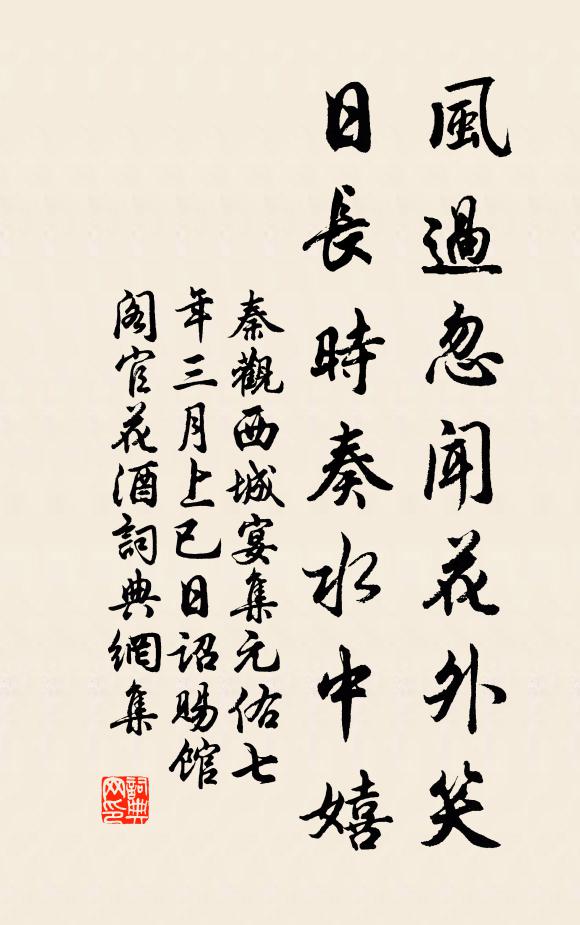 風過忽聞花外笑
日長時奏水中嬉
秦觀西城宴集元佑七
年三月上已日詔賜館
閣官花酒詞典網集
詞典
网印